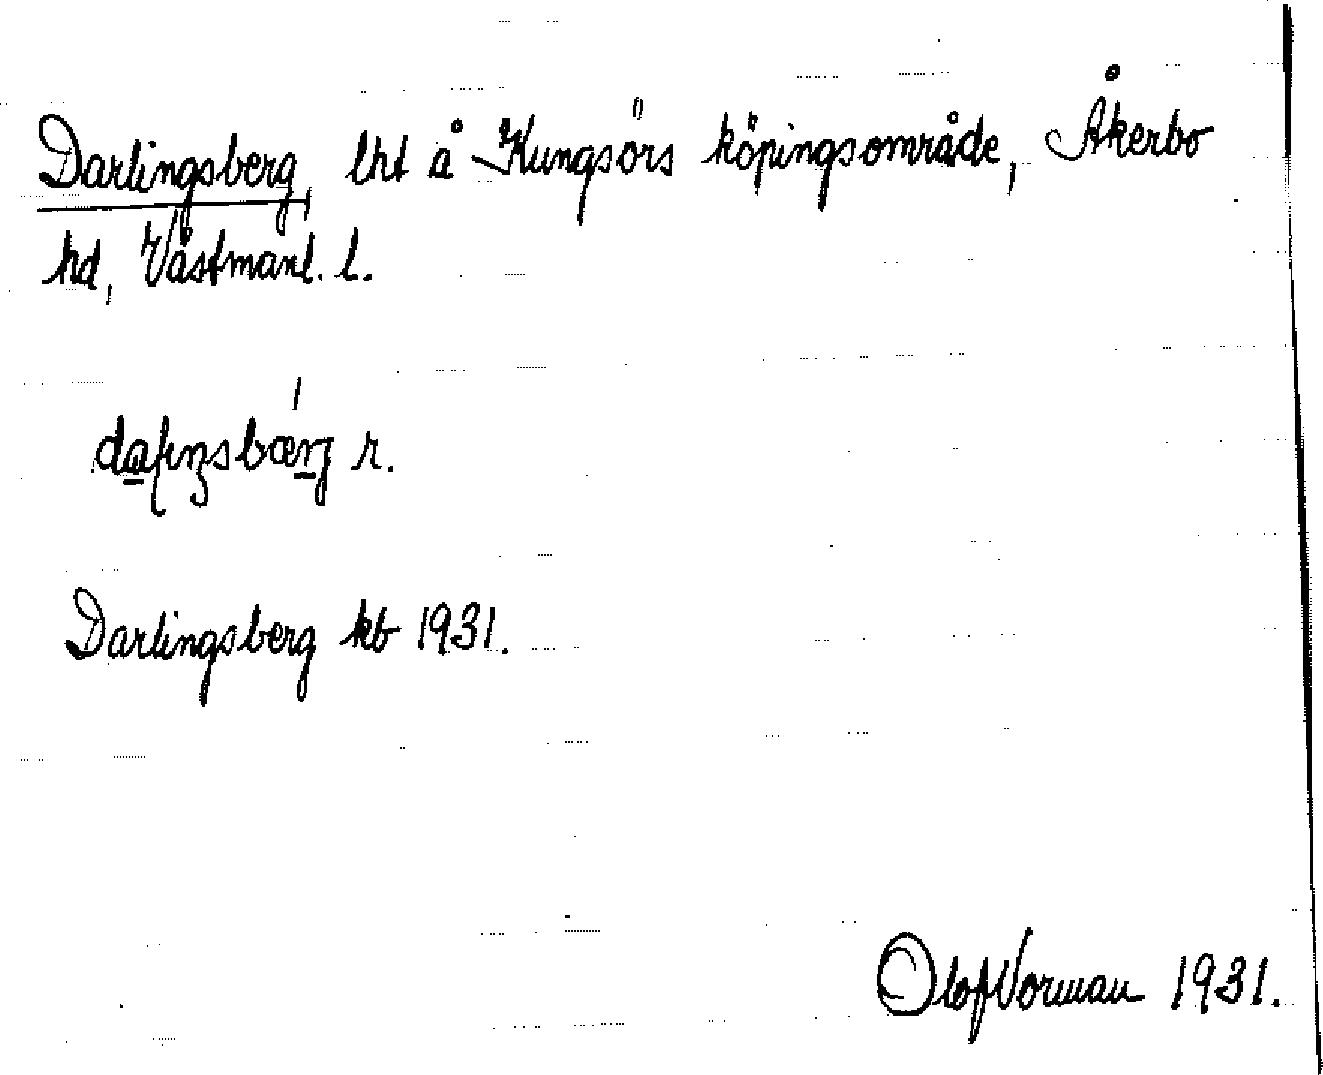 Darlingsberg, lht å Kungsörs köpingsområde, Åkerbo
hd, Västmanl. l.
r.
Darlingsberg kb 1931.
Olof Vorman 1931.